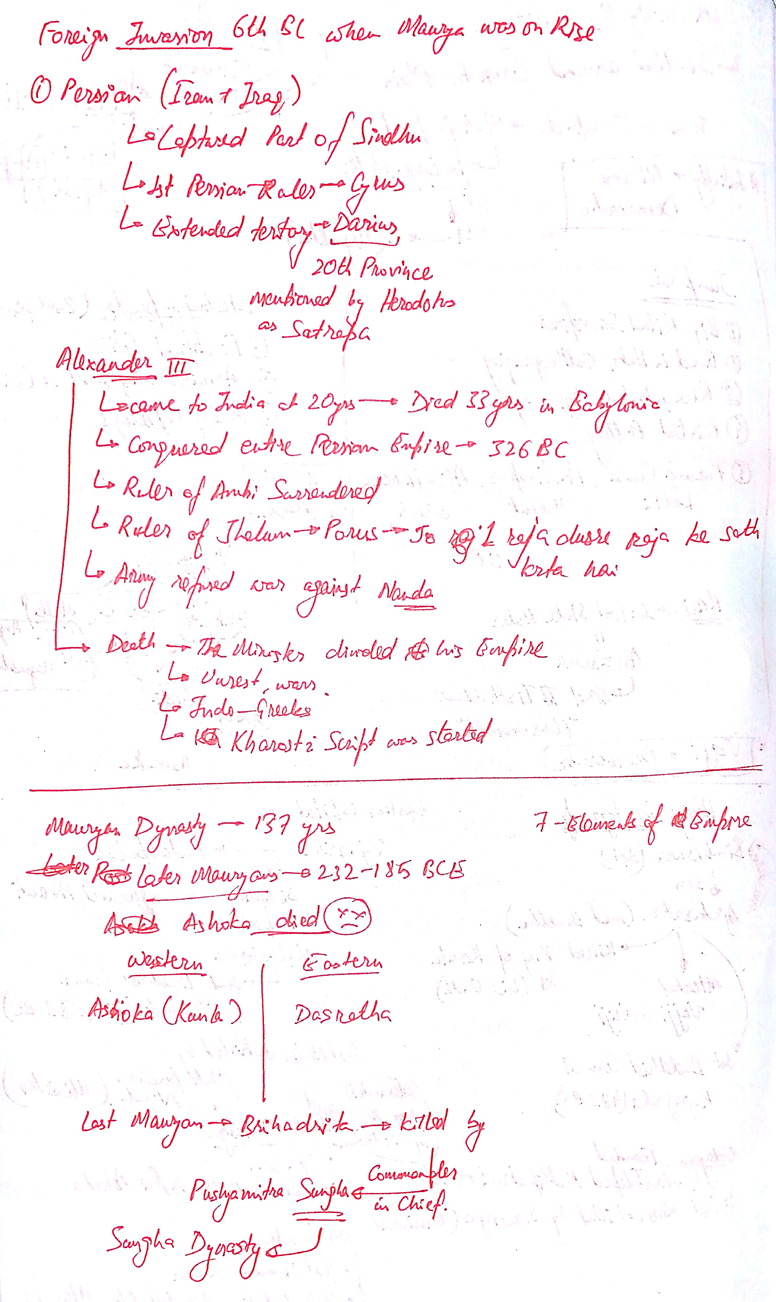 Foreign Invasion 6th BC when Maurya was on Rise
① Persian (Iran + Iraq)
↳ Captured Part of Sindhu
↳ 1st Persian Ruler → Cyrus
↳ Extended tertory → Darius,
20th Province
mentioned by Herodotus
as Satrapa
Alexander III
↳ came to India at 20yrs → Died 33 yrs in Babylonia
↳ Conquered entire Persian Empire → 326 BC
↳ Ruler of Ambi Surrendered
↳ Ruler of Jhelum → Porus → Jo 1 raja dusre raja ke sath
krta hai
↳ Army refused war against Nanda
Death → The Minister divided his Empire
↳ Unrest, wars.
↳ Indo-Greeks
↳ Kharosti Script was started
Mauryan Dynasty — 137 yrs
7 - Elements of Empire
Later Mauryans → 232-185 BCE
Ashoka died
Western
Eastern
Ashoka (Kunla)
Dasratha
Last Mauryan → Brihadrita → killed by
Pushyamitra Sungha ← Commander
in Chief.
Sungha Dynasty ←